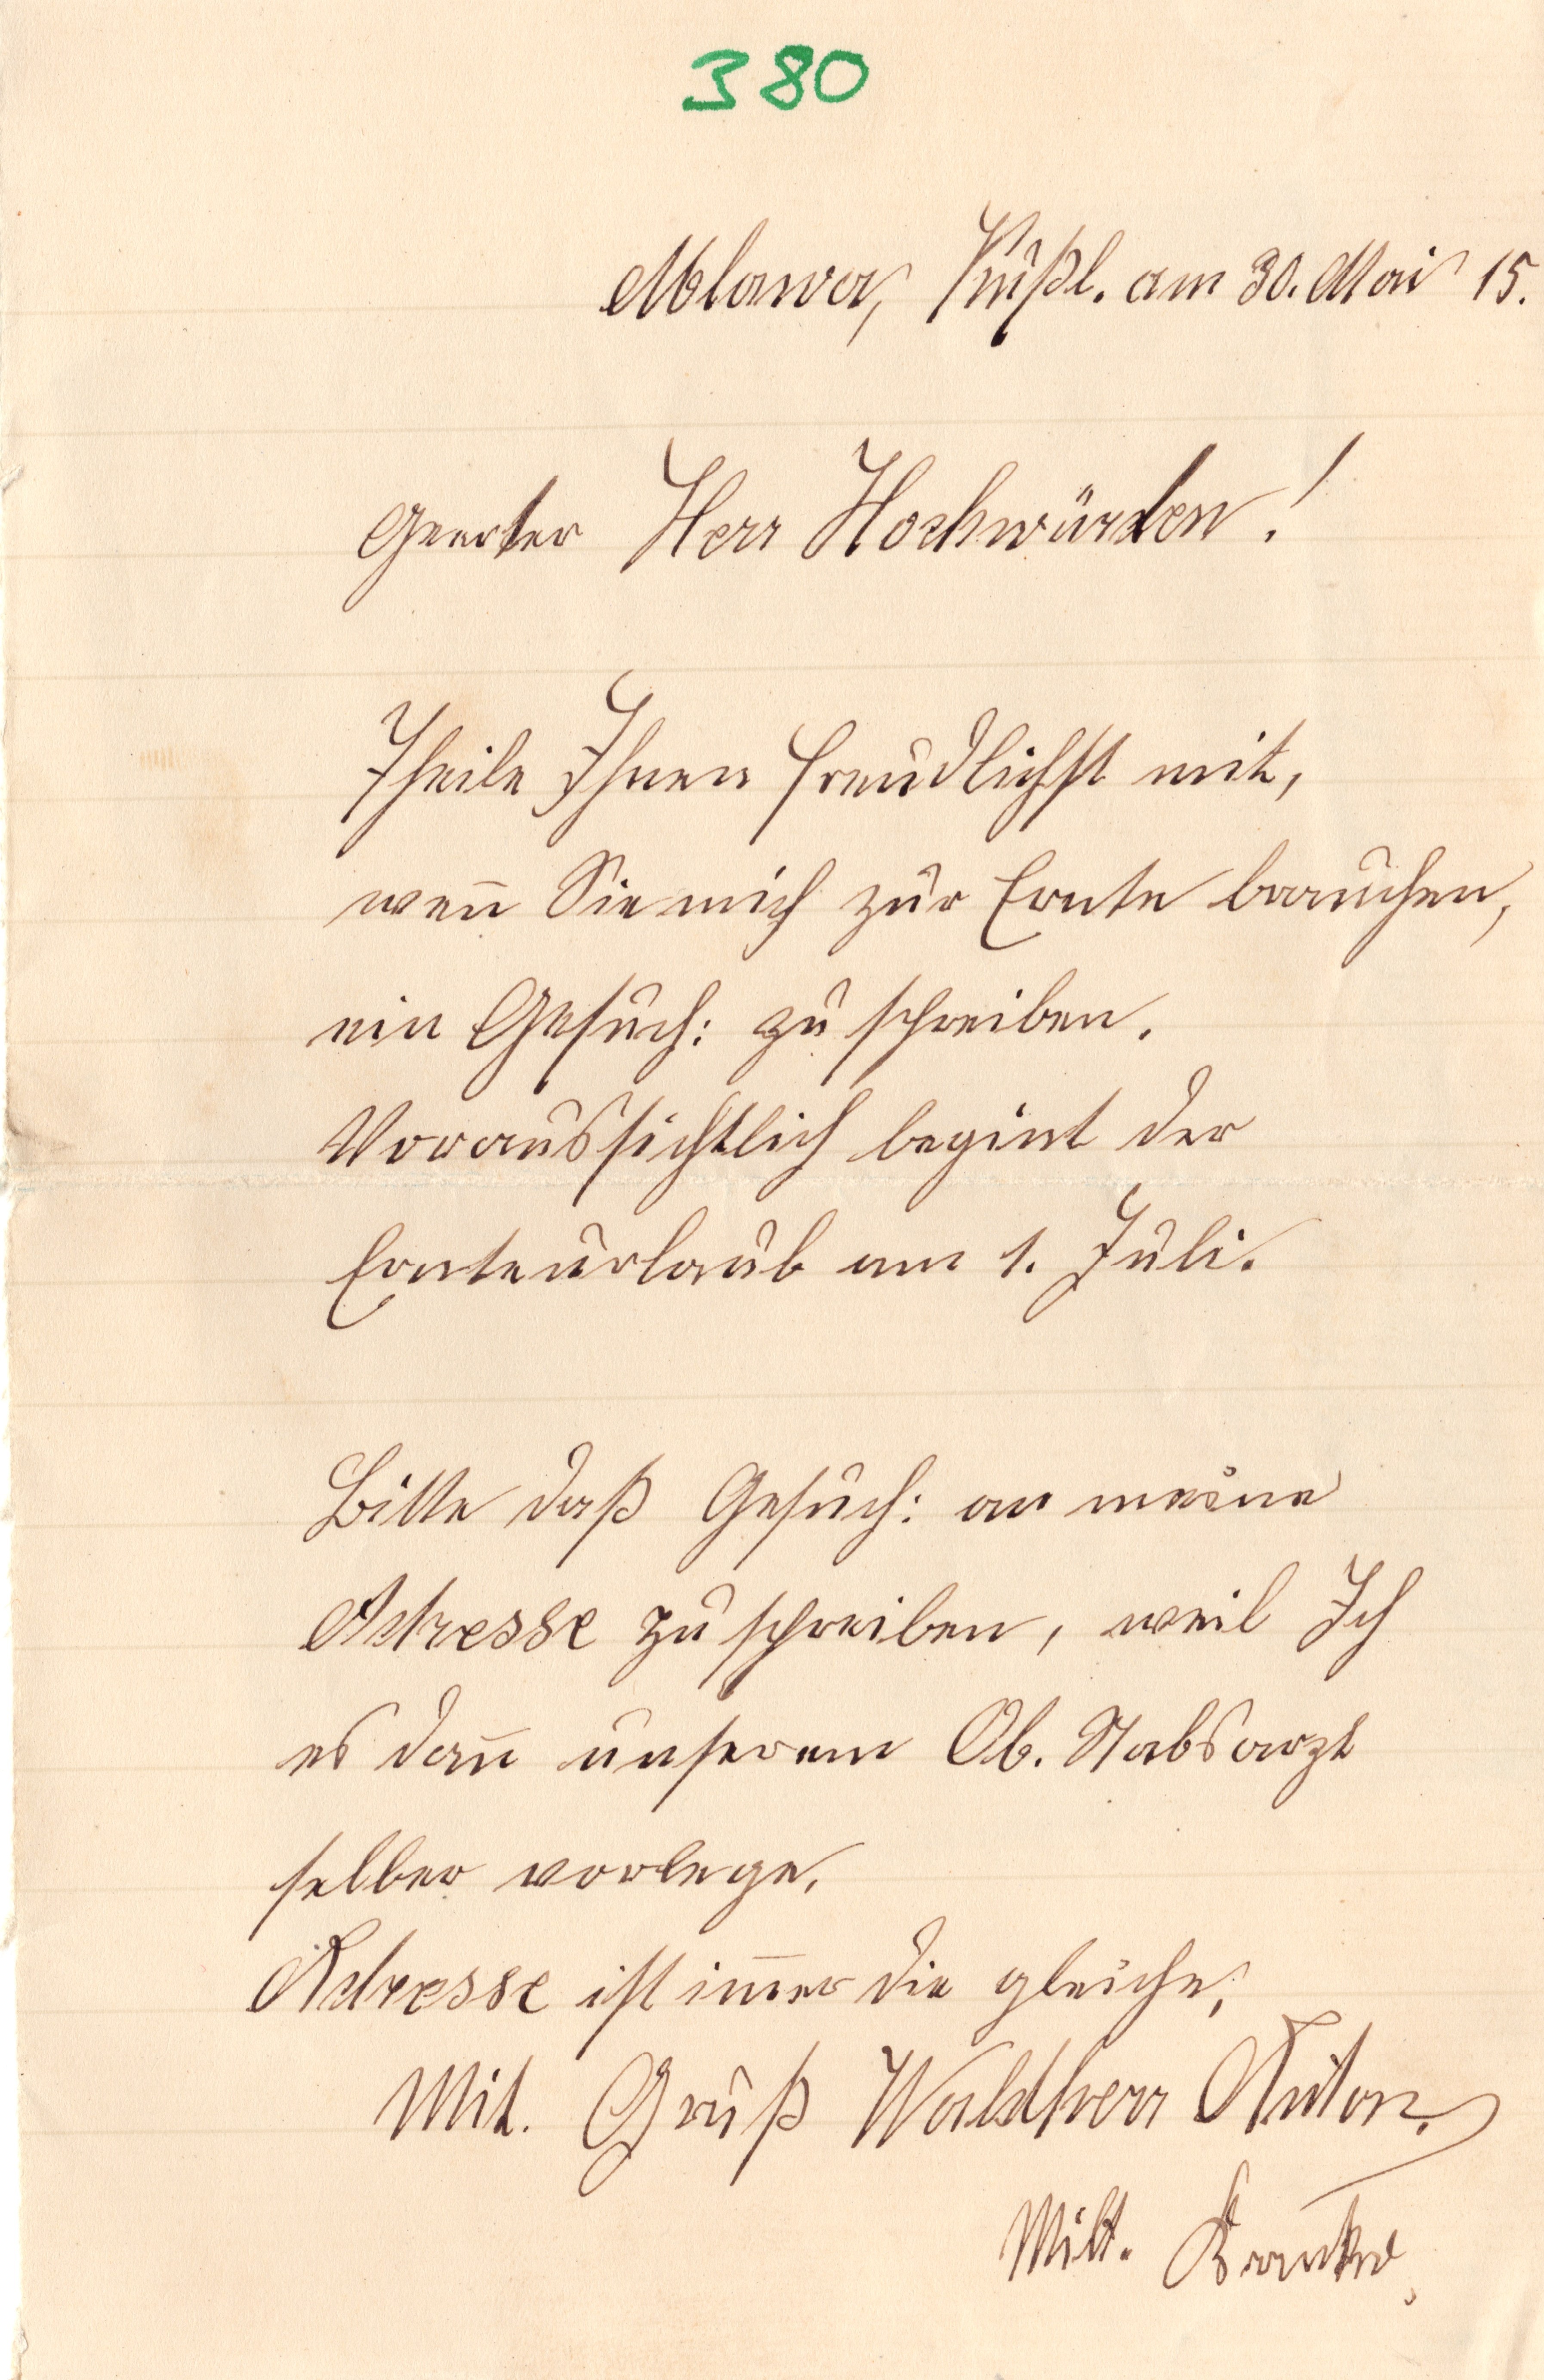 380
Mlawa, Rußl. am 30. Mai 15.
Geerter Herr Hochwürden!
Theile Ihnen freudlichst mit,
wen̄ Sie mich zur Ernte brauchen,
ein Gesuch: zu schreiben.
Voraussichtlich begint der
Ernteurlaub am 1. Juli.
Bitte daß Gesuch: an meine
Adresse zu schreiben, weil Ich
es dan̄ unserem Ob. Stabsarzt
selber vorlege.
Adresse ist im̄er die gleiche,
Mit. Gruß Waldherr Anton.
Milt.